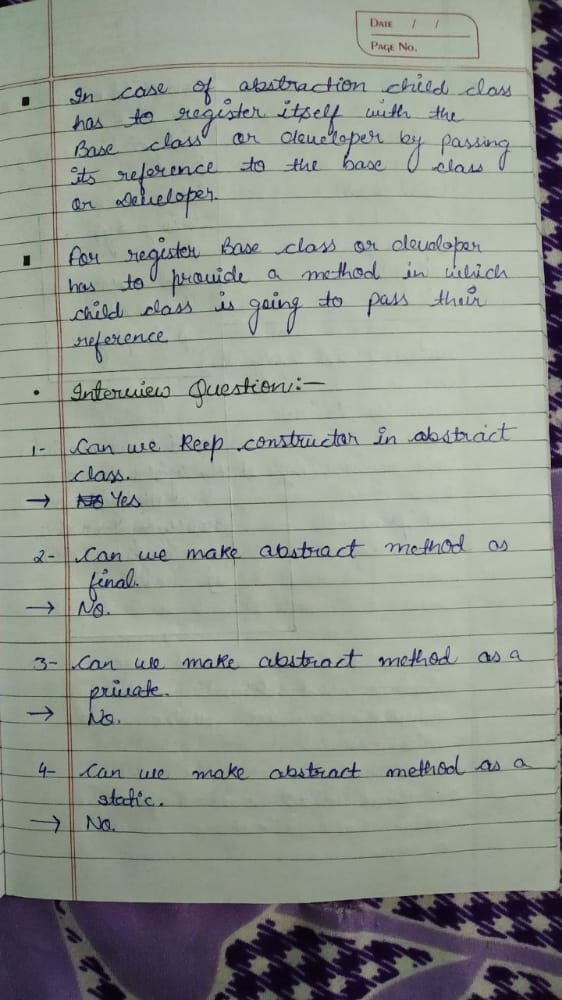 DATE / /
PAGE NO.
▪ In case of abstraction child class
has to register itself with the
Base class or developer by passing
its reference to the base class
or Developer.
▪ For register Base class or developer
has to provide a method in which
child class is going to pass their
reference
• Interview Question:-
1- Can we Keep constructor in abstract
class.
→ Yes
2- Can we make abstract method as
final.
→ No.
3- Can we make abstract method as a
private.
→ No.
4- Can we make abstract method as a
static.
→ No.